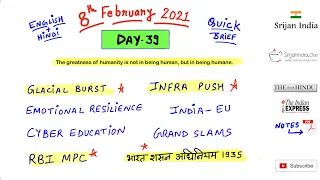 ENGLISH + HINDI
8th February 2021
QUICK BRIEF
DAY-39
Srijan India
The greatness of humanity is not in being human, but in being humane.
GLACIAL BURST
INFRA PUSH
EMOTIONAL RESILIENCE
INDIA-EU
CYBER EDUCATION
GRAND SLAMS
RBI MPC
भारत शासन अधिनियम 1935
SrijanIndia.One
THE HINDU
The Indian EXPRESS
NOTES
Subscribe